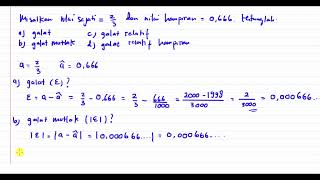 Misalkan nilai sejati = 2/3 dan nilai hampiran = 0,666. Hitunglah:
a) galat c) galat relatif
b) galat mutlak d) galat relatif hampiran
a = 2/3 â = 0,666
a) galat (ε)?
ε = a - â = 2/3 - 0,666 = 2/3 - 666/1000 = 2000 - 1998/3000 = 2/3000 = 0,000666....
b) galat mutlak (|ε|)
|ε| = |a - â| = |0,000666....| = 0,000666....